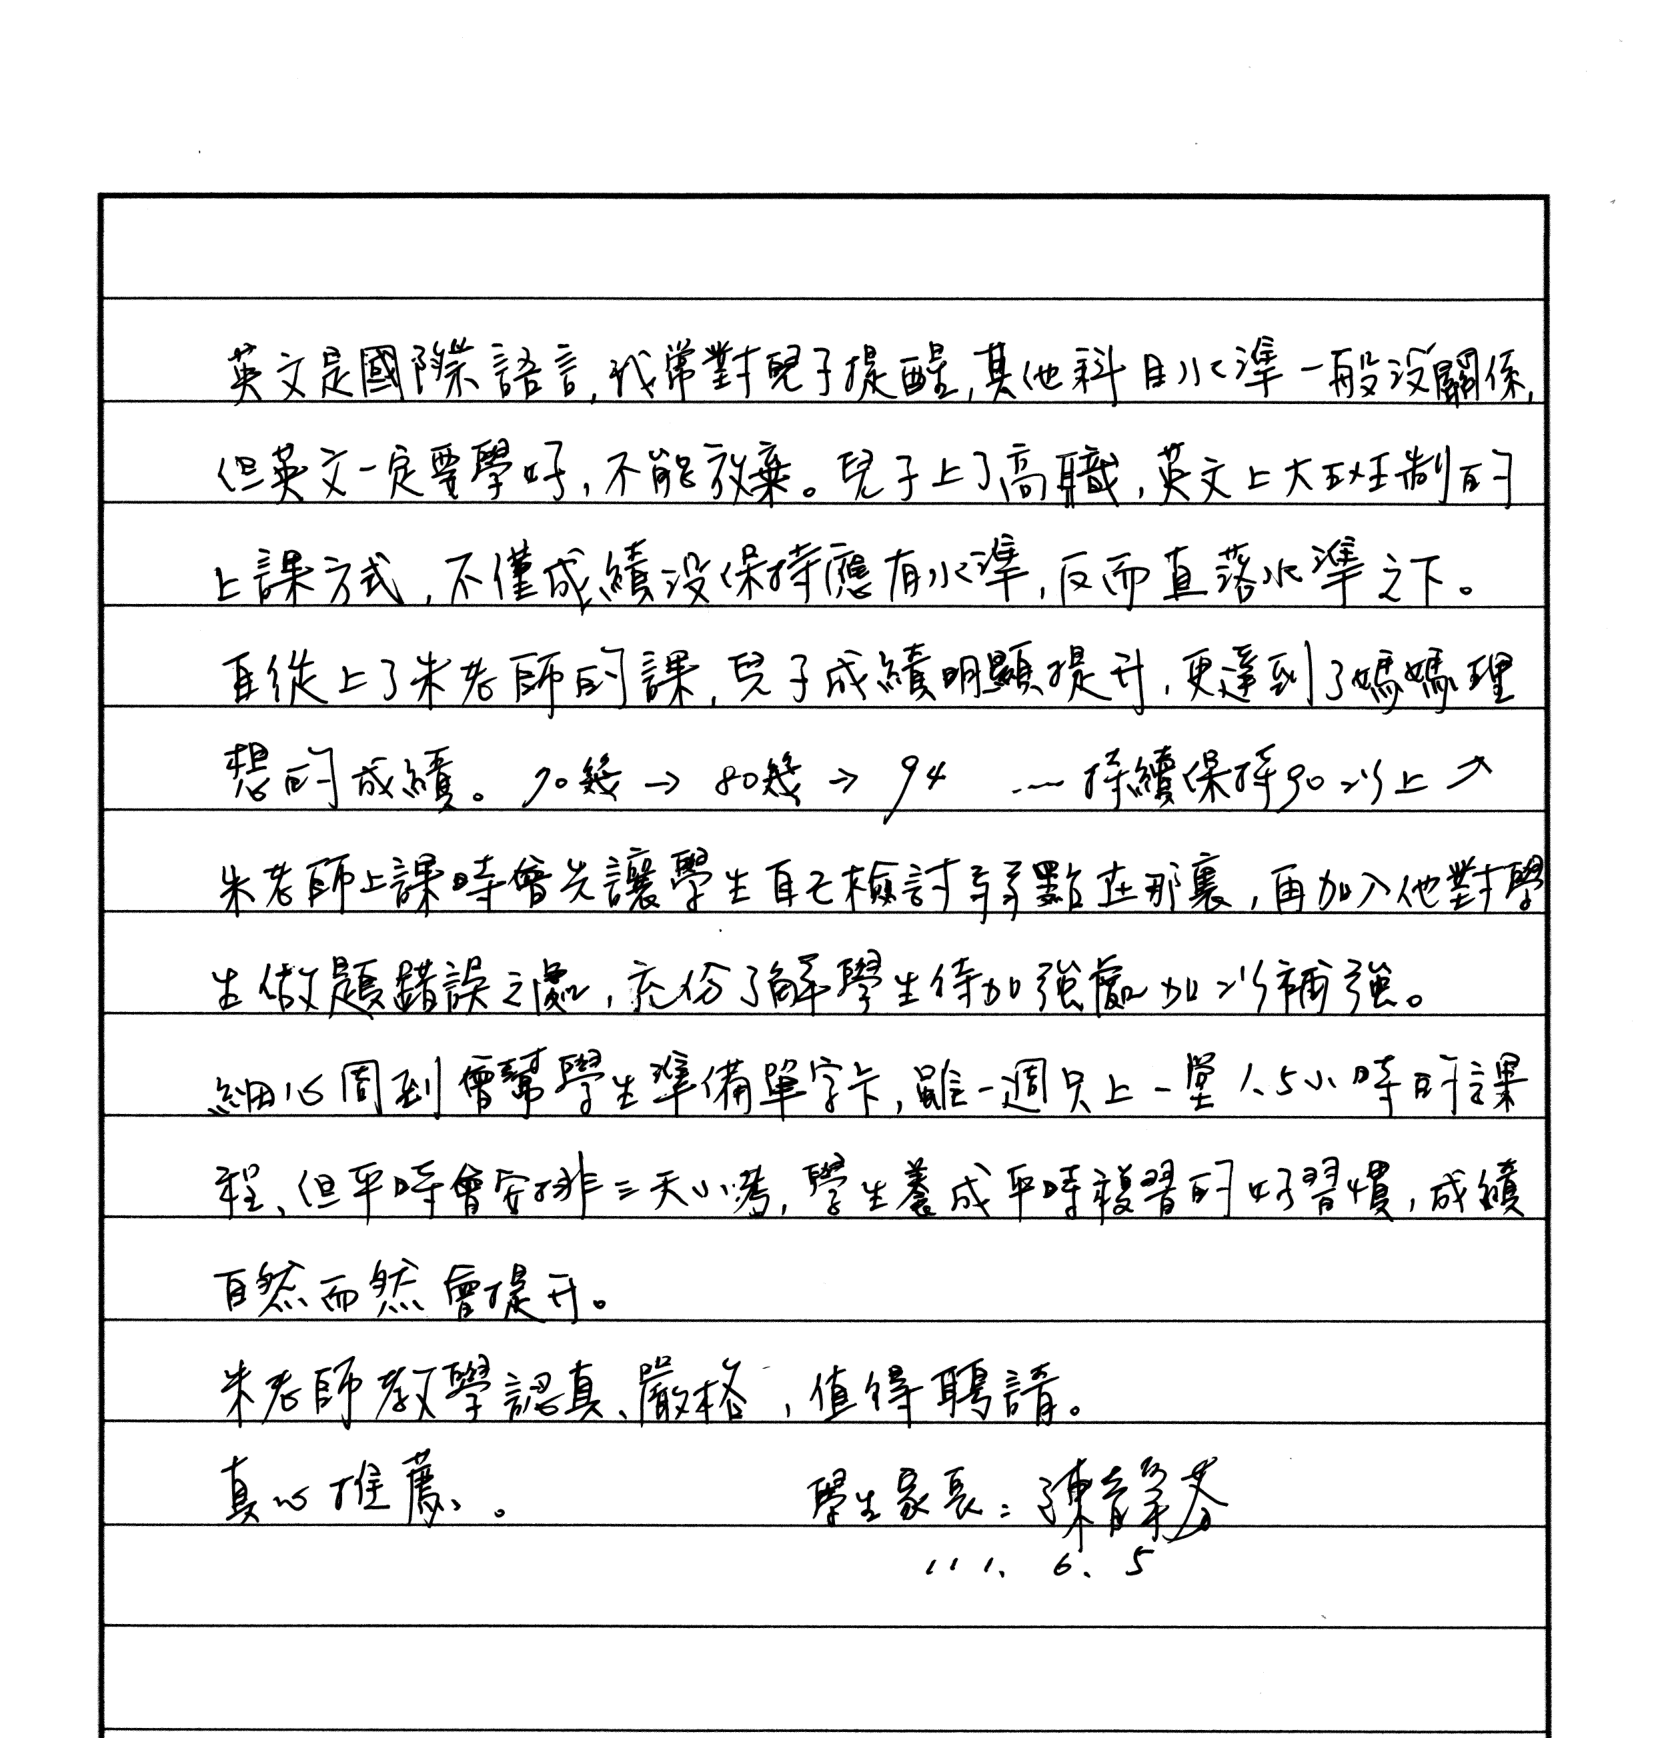 英文是國際語言,我常對兒子提醒,其他科目水準一般没關係,
但英文一定要學好,不能放棄。兒子上了高職,英文上大班制的
上課方式,不僅成績没保持應有水準,反而直落水準之下。
自從上了朱老師的課,兒子成績明顯提升,更達到了媽媽理
想的成績。70幾→80幾→94 ……持續保持90以上↗
朱老師上課時會先讓學生自己檢討弱點在那裏,再加入他對學
生做題錯誤之處,充份了解學生待加強處加以補強。
細心周到會幫學生準備單字卡,雖一週只上一堂1.5小時的課
程、但平時會安排三天小考,學生養成平時複習的好習慣,成績
自然而然會提升。
朱老師教學認真、嚴格,值得聘請。
真心推薦。 學生家長:陳
111.6.5